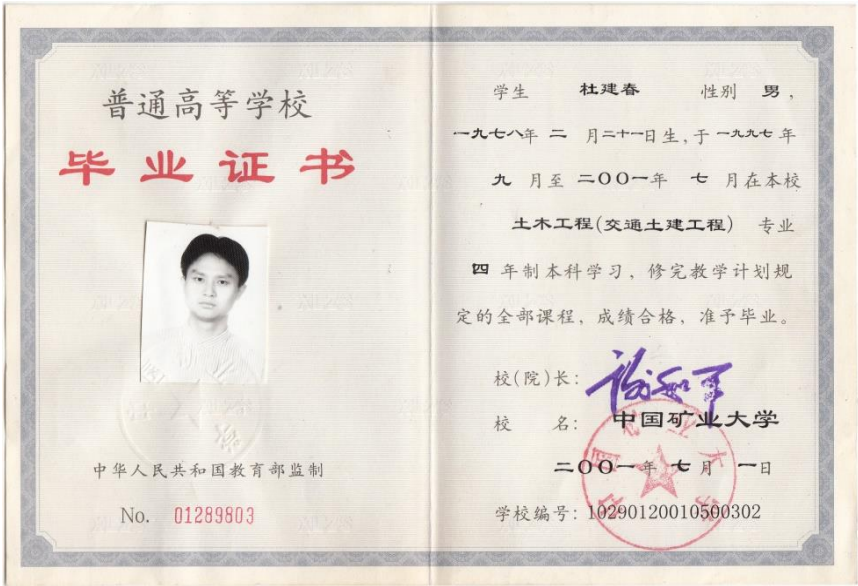 普通高等学校
毕业证书
中华人民共和国教育部监制
No. 01289803
学生 杜建春 性别 男，
一九七八年 二 月二十一日生，于 一九九七 年
九 月至 二〇〇一年 七 月在本校
土木工程(交通土建工程) 专业
四 年制本科学习，修完教学计划规
定的全部课程，成绩合格，准予毕业。
校(院)长：
校 名：中国矿业大学
二〇〇一年 七月 一日
学校编号：10290120010500302
中国矿业大学